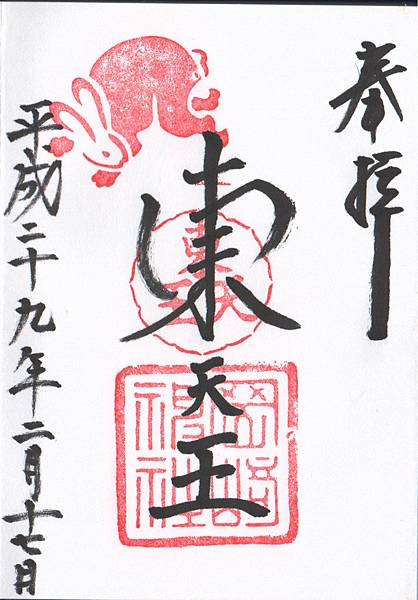 奉拝
東天王
岡崎
神社
平成二十九年二月十七日